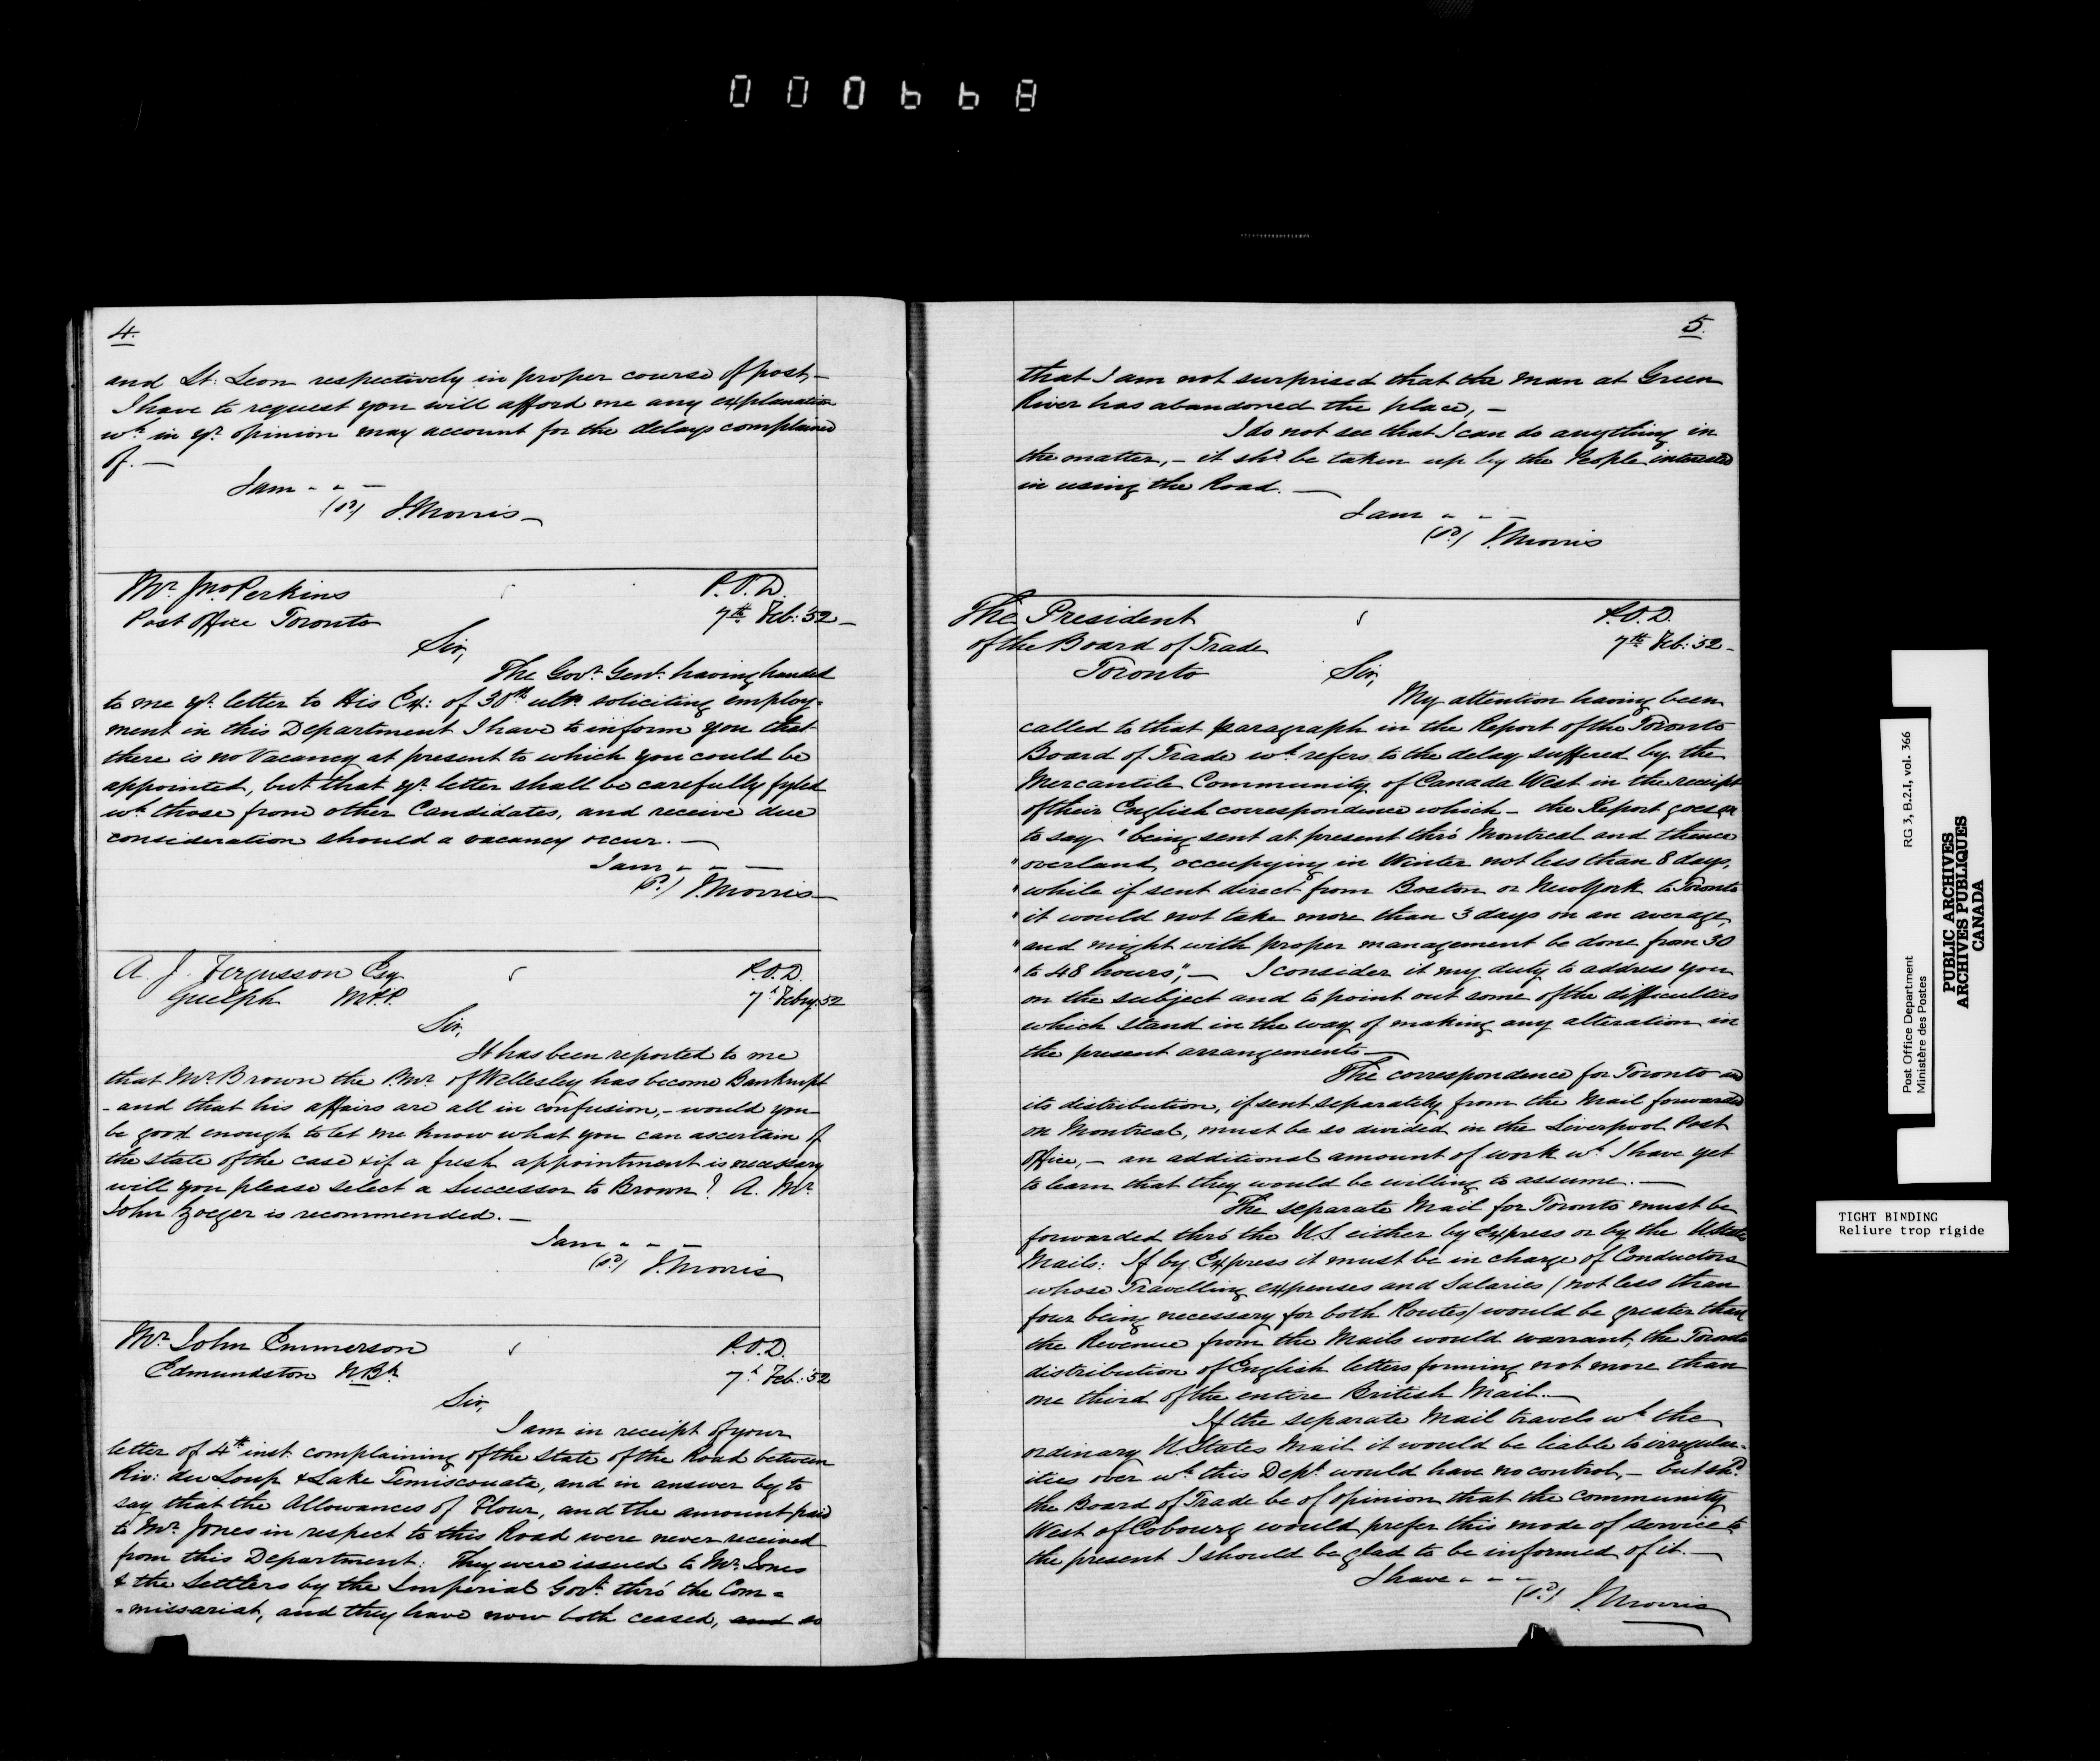 000668
4.
and St: Leon respectively in proper course of post,—
I have to request you will afford me any explanation
wh in yr. opinion may account for the delays complained
of.—
I am - - -
(sd) J. Morris—
Mr. Jno. Perkins
Post Office Toronto
P.O.D.
7th Feb: '52—
Sir,
The Govr. Genl. having handed
to me yr. letter to His Ex: of 30th ulto. soliciting employ-
ment in this Department I have to inform you that
there is no Vacancy at present to which you could be
appointed, but that yr. letter shall be carefully fyled
wh. those from other Candidates, and receive due
consideration should a vacancy occur.—
I am - - —
(sd) J. Morris—
A. J. Fergusson Esq
Guelph M.P.P.
P.O.D.
7h Feby. 52
Sir,
It has been reported to me
that Mr. Brown the P.Mr. of Wellesley has become Bankrupt
- and that his affairs are all in confusion,- would you
be good enough to let me know what you can ascertain of
the state of the case & if a fresh appointment is necessary
will you please select a Successor to Brown? A. Mr.
John Zoeger is recommended.—
I am - - -
(sd) J. Morris
Mr. John Emmerson
Edmundston N.Bk.
P.O.D.
7h Feb: '52
Sir,
I am in receipt of your
letter of 4th inst. complaining of the State of the Road between
Riv: du Loup & Lake Temiscouata, and in answer beg to
say that the Allowances of Flour, and the amount paid
to Mr. Jones in respect to this Road were never received
from this Department: They were issued to Mr. Jones
& the Settlers by the Imperial Govt. thro' the Com=
-missariat, and they have now both ceased, and so
5.
that I am not surprised that the man at Green
River has abandoned the place,—
I do not see that I can do anything in
the matter,— it shd. be taken up by the People interested
in using the Road.—
I am - - —
(sd) J. Morris
The President
of the Board of Trade
Toronto
P.O.D.
7th Feb: '52-
Sir,
My attention having been
called to that paragraph in the Report of the Toronto
Board of Trade wh. refers to the delay suffered by the
Mercantile Community of Canada West in the receipt
of their English correspondence which - the Report goes on
to say "being sent at present thro' Montreal and thence
"overland, occupying in Winter not less than 8 days,
"while if sent direct from Boston or New York to Toronto
"it would not take more than 3 days on an average,
"and might with proper management be done from 30
"to 48 hours",— I consider it my duty to address you
on the subject and to point out some of the difficulties
which stand in the way of making any alteration in
the present arrangements—
The correspondence for Toronto and
its distribution, if sent separately from the Mail forwarded
on Montreal, must be so divided in the Liverpool Post
Office,— an additional amount of work wh. I have yet
to learn that they would be willing to assume.—
The separate Mail for Toronto must be
forwarded thro' the U.S either by Express or by the U. States
Mails: If by Express it must be in charge of Conductors
whose Travelling expenses and Salaries (not less than
four being necessary for both Routes) would be greater than
the Revenue from the Mails would warrant, the Toronto
distribution of English letters forming not more than
one third of the entire British Mail.—
If the separate Mail travels wh. the
ordinary U. States Mail it would be liable to irregular-
ities over wh. this Dept. would have no control,— but shd.
the Board of Trade be of opinion that the community
West of Cobourg would prefer this mode of service to
the present I should be glad to be informed of it.—
I have - - -
(sd) J. Morris
Post Office Department RG 3, B.2.I, vol. 366
Ministère des Postes
PUBLIC ARCHIVES
ARCHIVES PUBLIQUES
CANADA
TIGHT BINDING
Reliure trop rigide